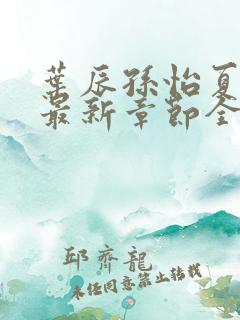 葉辰孫怡夏
最新章節全
邱齊龍
未经同意禁止转载